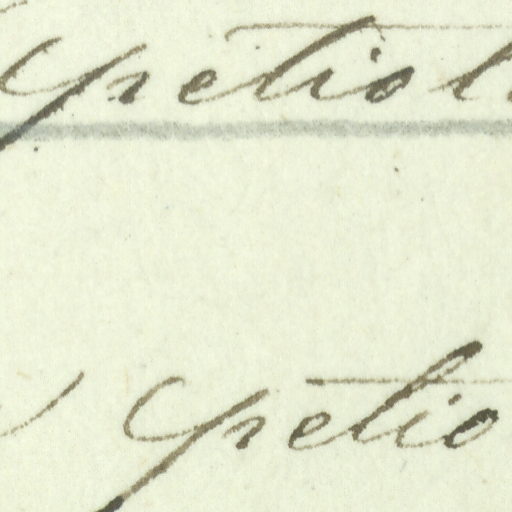 petiol
petio